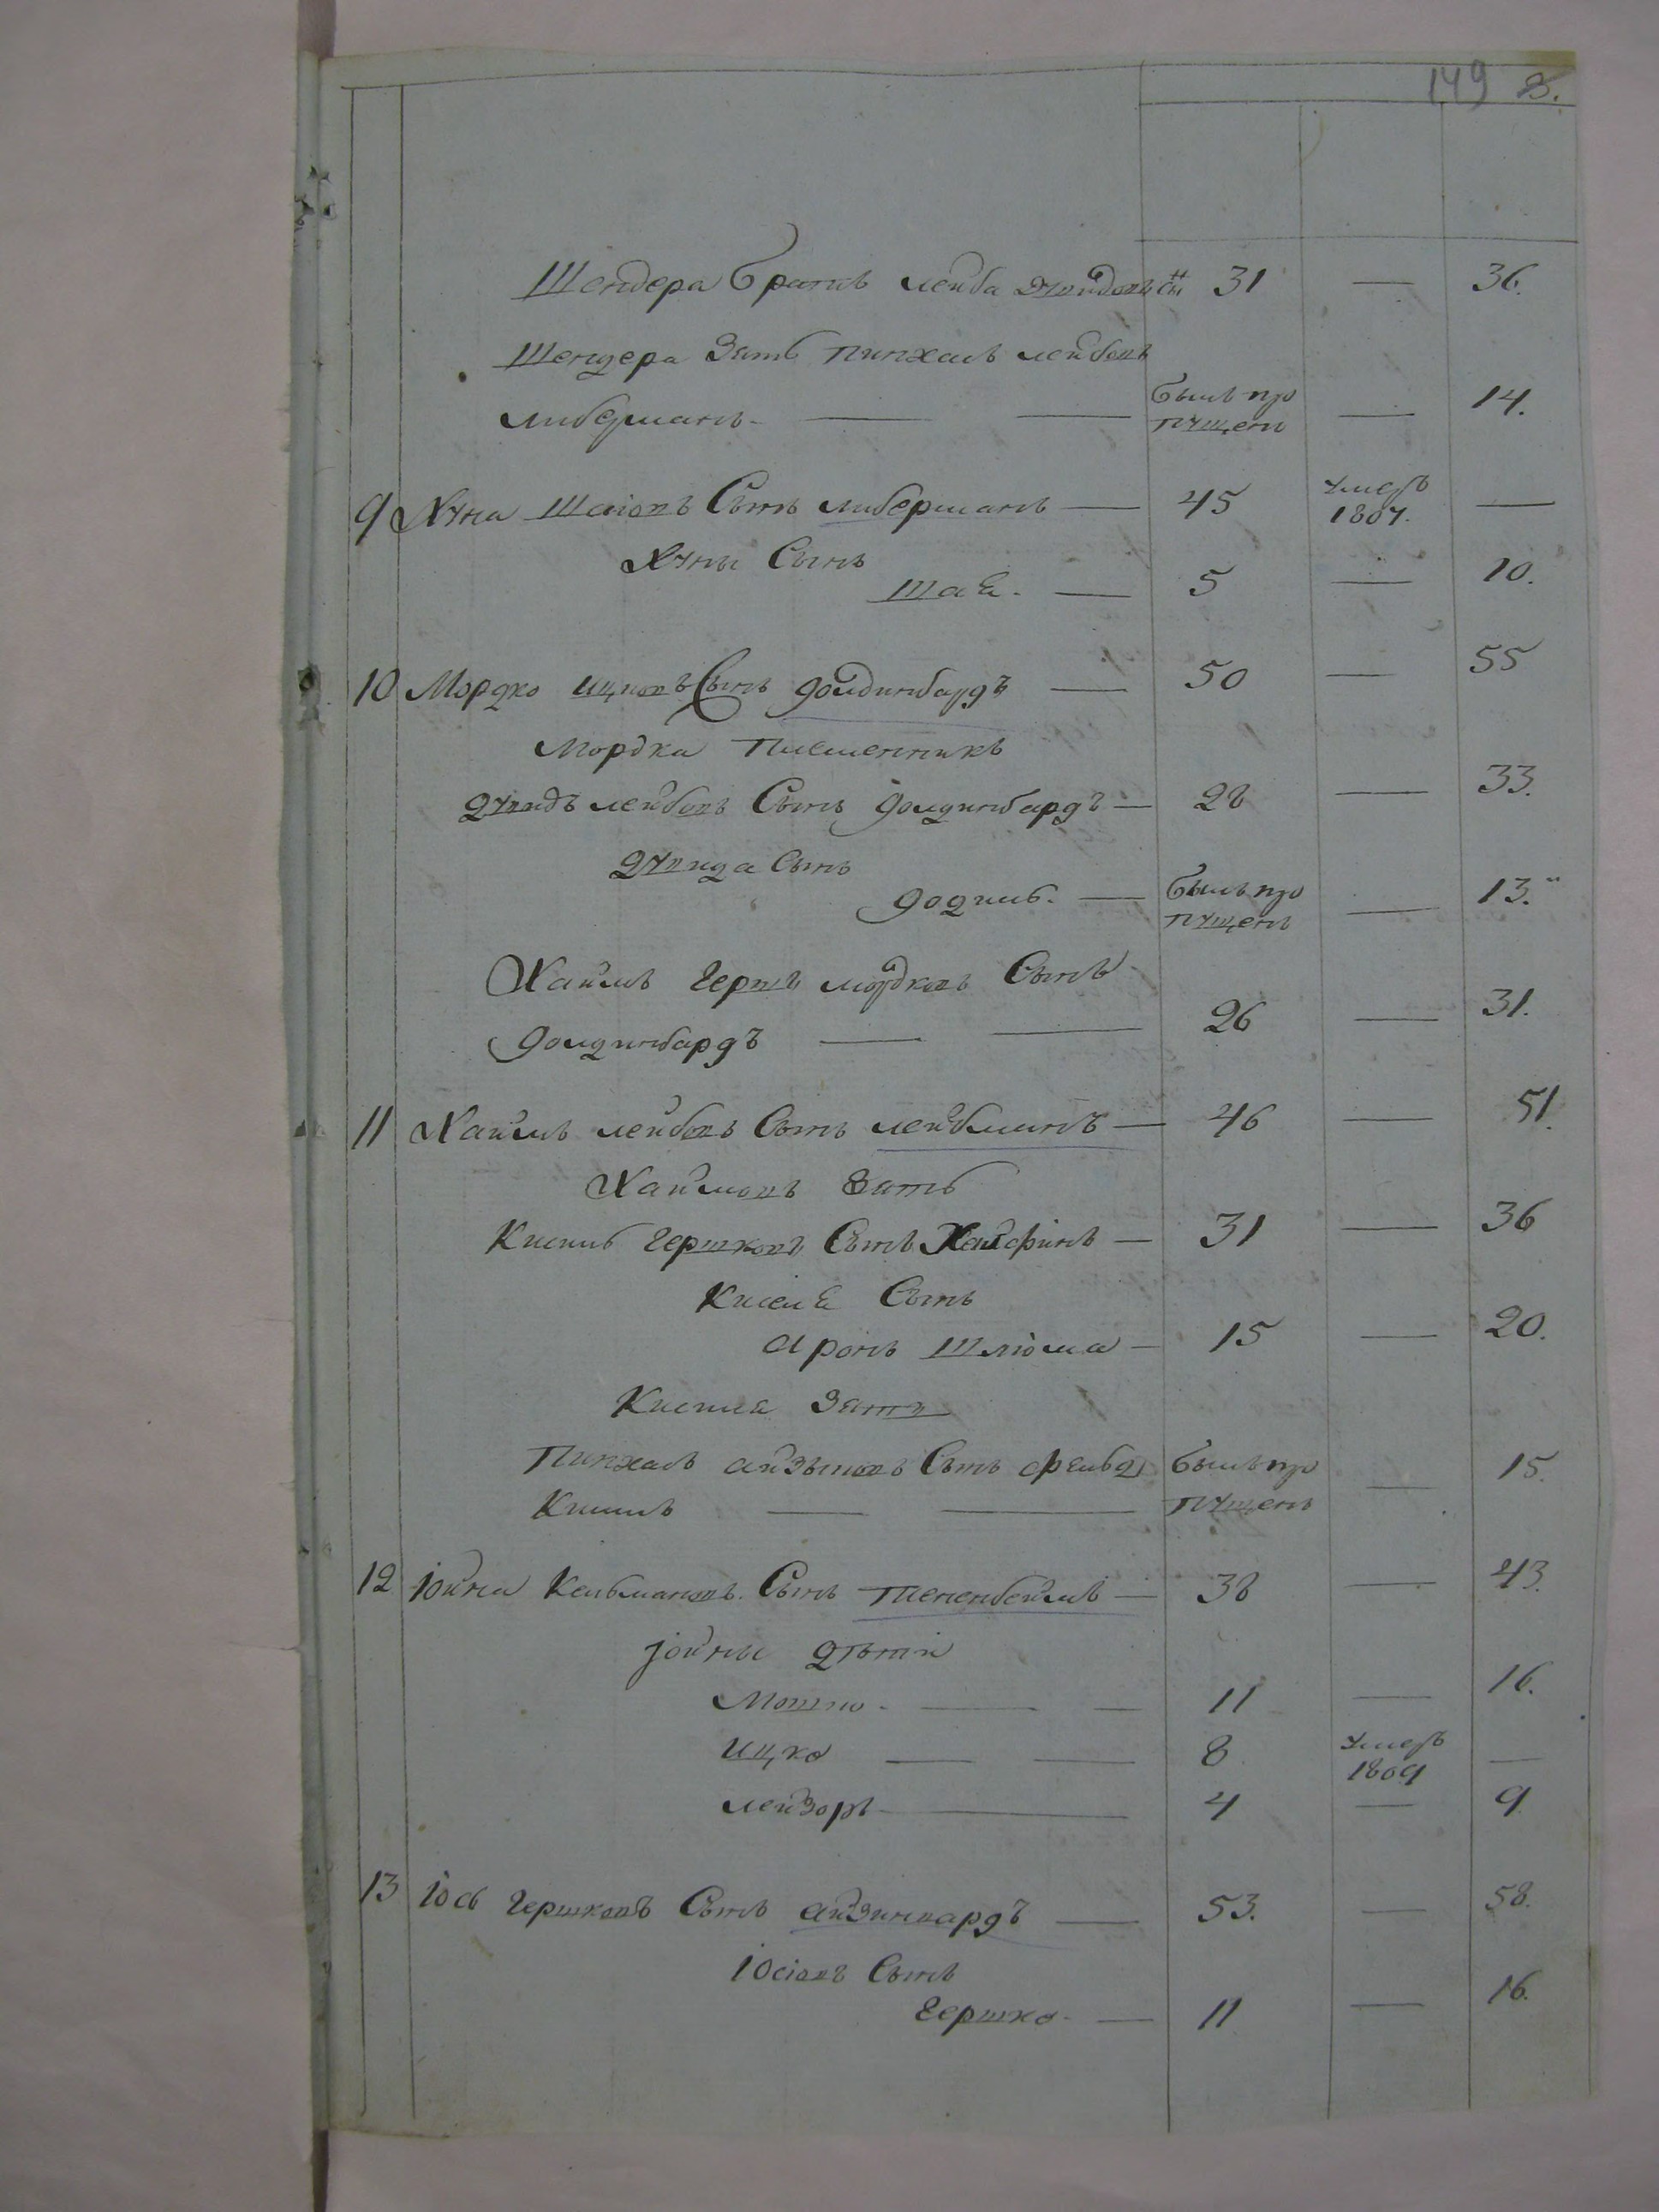 149 3.
Шендера братъ лейба дувидовъ сы^н 31 — 36.
Шендера зять Пинхасъ лейбовъ
либерманъ — — былъ про пущенъ — 14.
9 Хуна Шаіовъ Сынъ либерманъ — 45 умеръ 1807. —
Хуны Сынъ
Шаѣ. — 5 — 10.
10 Мордко ицковъ Сынъ голдинбаргъ — 50 — 55
Мордка Племенникъ
дувидъ лейбовъ Сынъ голдинбаргъ — 28 — 33.
дувида Сынъ
— былъ про пущенъ — 13.
Хаимъ гершъ мордковъ Сынъ
голдинбаргъ — — 26 — 31.
11 Хаимъ лейбовъ Сынъ лейбманъ — 46 — 51.
Хаимовъ зять
Кисиль гершковъ Сынъ — 31 — 36
Киселѣ Сынъ
аронъ Шліома — 15 — 20.
Кисиля зять
Пинхасъ айзыковъ Сынъ фельд былъ про — 15.
пущенъ
12 Іойна Кельмановъ Сынъ Тененбеймъ — 38 — 43.
Іойны дѣти
Мошко. — — 11 — 16.
ицко — — 8 умеръ 1809 —
лейзоръ — 4 — 9
13 Іось гершковъ Сынъ айзингардъ — 53. — 58.
Іосіовъ Сынъ
гершко. — 11 — 16.